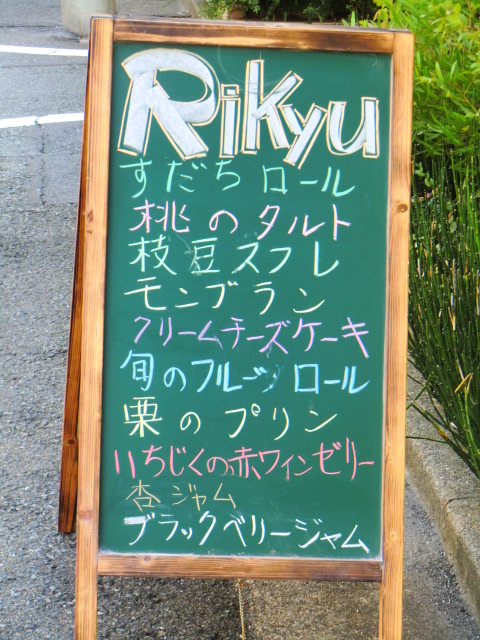 Rikyu
すだちロール
桃のタルト
枝豆スフレ
モンブラン
クリームチーズケーキ
旬のフルーツロール
栗のプリン
いちじくの赤ワインゼリー
杏ジャム
ブラックベリージャム